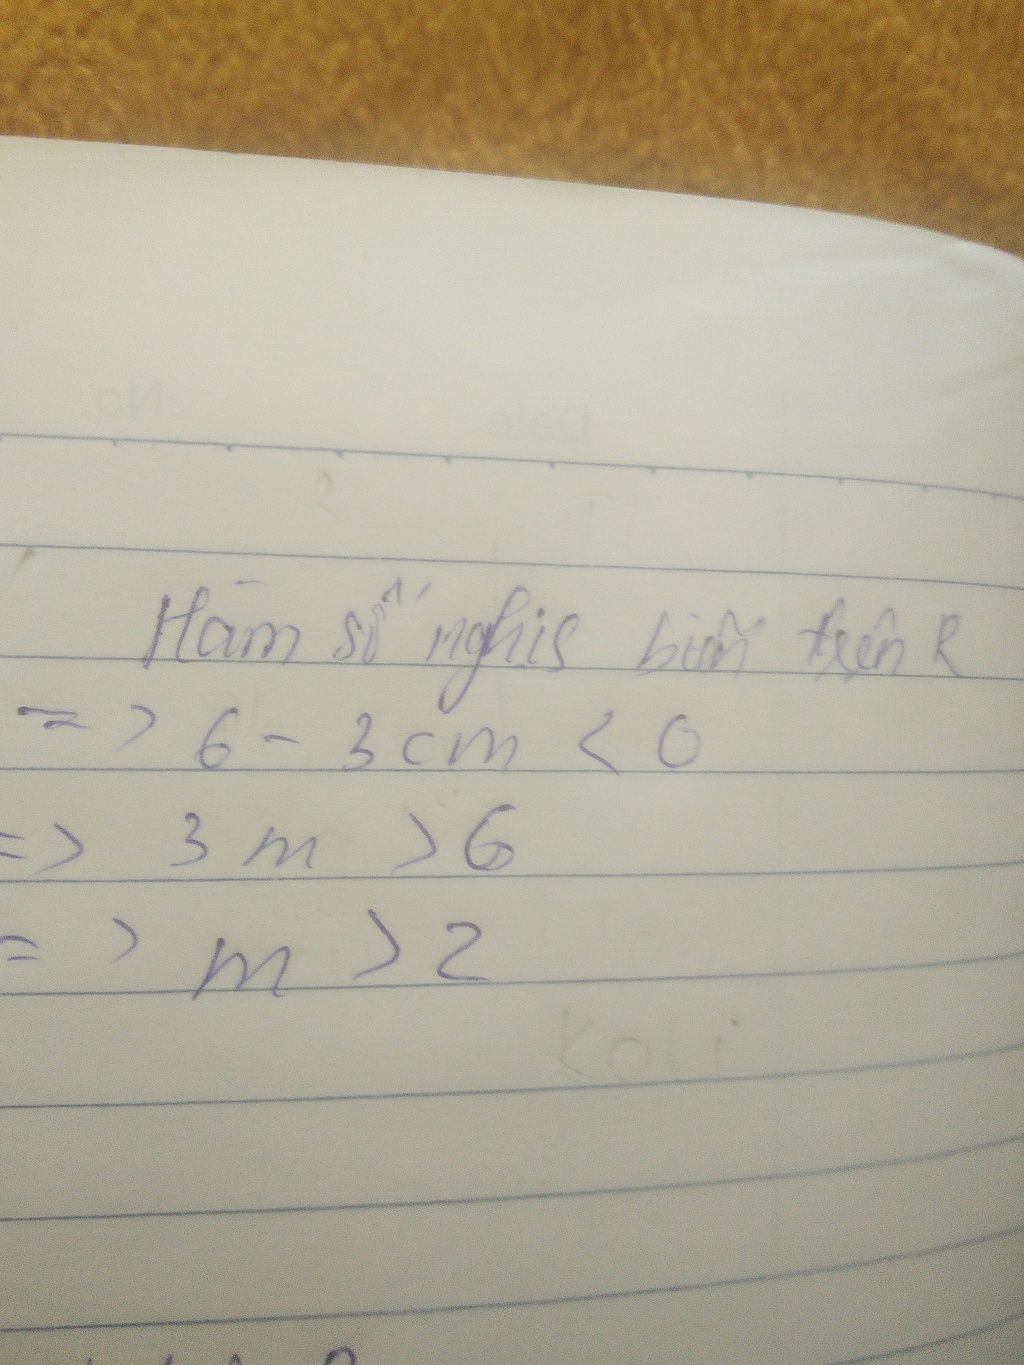 Hàm số nghịc biến trên R
=> 6 - 3cm < 0
=> 3m > 6
=> m > 2